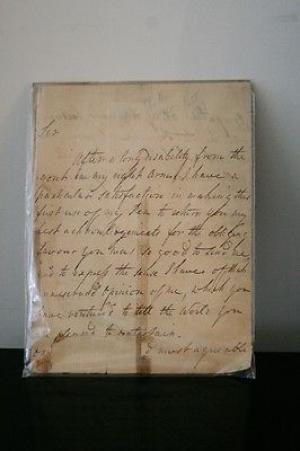 Sir
After a long disability from the
gout in my right Arm, I have a
particular satisfaction in making this
first use of my Pen to return you my
best acknowlegements for the obliging
favour you were so good to send me
and to express the sense I have of that
unreserved Opinion of me, which you
have ventured to tell the World you
are pleased to entertain.
most agreeable